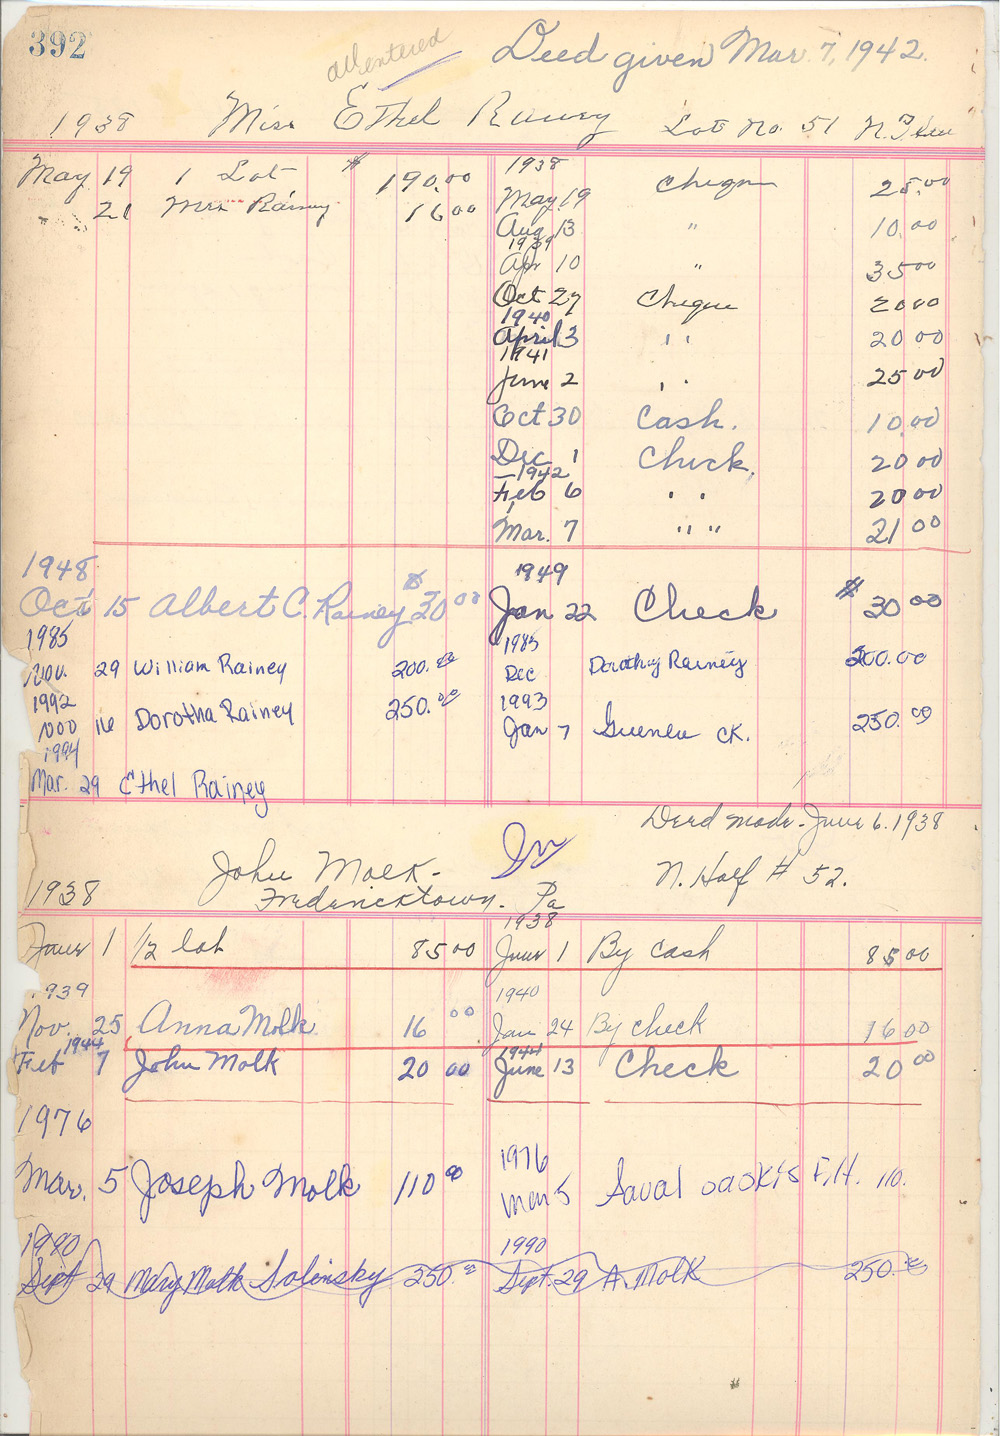 392 all entered Deed given Mar. 7, 1942.
1938 Miss Ethel Rainey Lot No. 51 N.
May 19 1 Lot $ 190.00
21 Mrs Rainey 16 00
1938
May 19 Cheque 25.00
Aug 13 " 10.00
1939
Apr 10 " 35 00
Oct 27 Cheque 20 00
1940
April 3 " 20 00
1941
June 2 " 25 00
Oct 30 Cash. 10.00
Dec 1 Check. 20 00
1942
Feb 6 " 20 00
Mar. 7 " " 21 00
1948 1949
Oct 15 Albert C. Rainey $ 30 00 Jan 22 Check $ 30 00
1985 1985
Nov. 29 William Rainey 200.00 Dec Dorothy Rainey 200.00
1992 1993
Nov 16 Dorotha Rainey 250.00 Jan 7 CK. 250.00
1994
Mar. 29 Ethel Rainey
Deed made June 6. 1938
John Molk - N. Half # 52.
1938 Fredericktown. Pa
1938
June 1 1/2 lot 85 00 June 1 By cash 85 00
1939 1940
Nov. 25 Anna Molk 16 00 Jan 24 By check 16 00
1944 1944
Feb 7 John Molk 20 00 June 13 Check 20 00
1976 1976
Mar. 5 Joseph Molk 110 00 Mar 5 F.H. 110.
1990 1990
Sept 29 Mary Molk Solinsky 250.00 Sept. 29 A. Molk 250.00